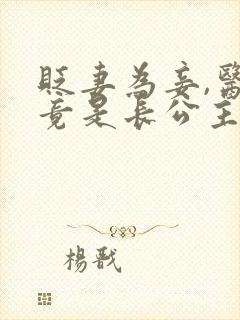 貶妻為妾,醫
竟是長公主
楊戩